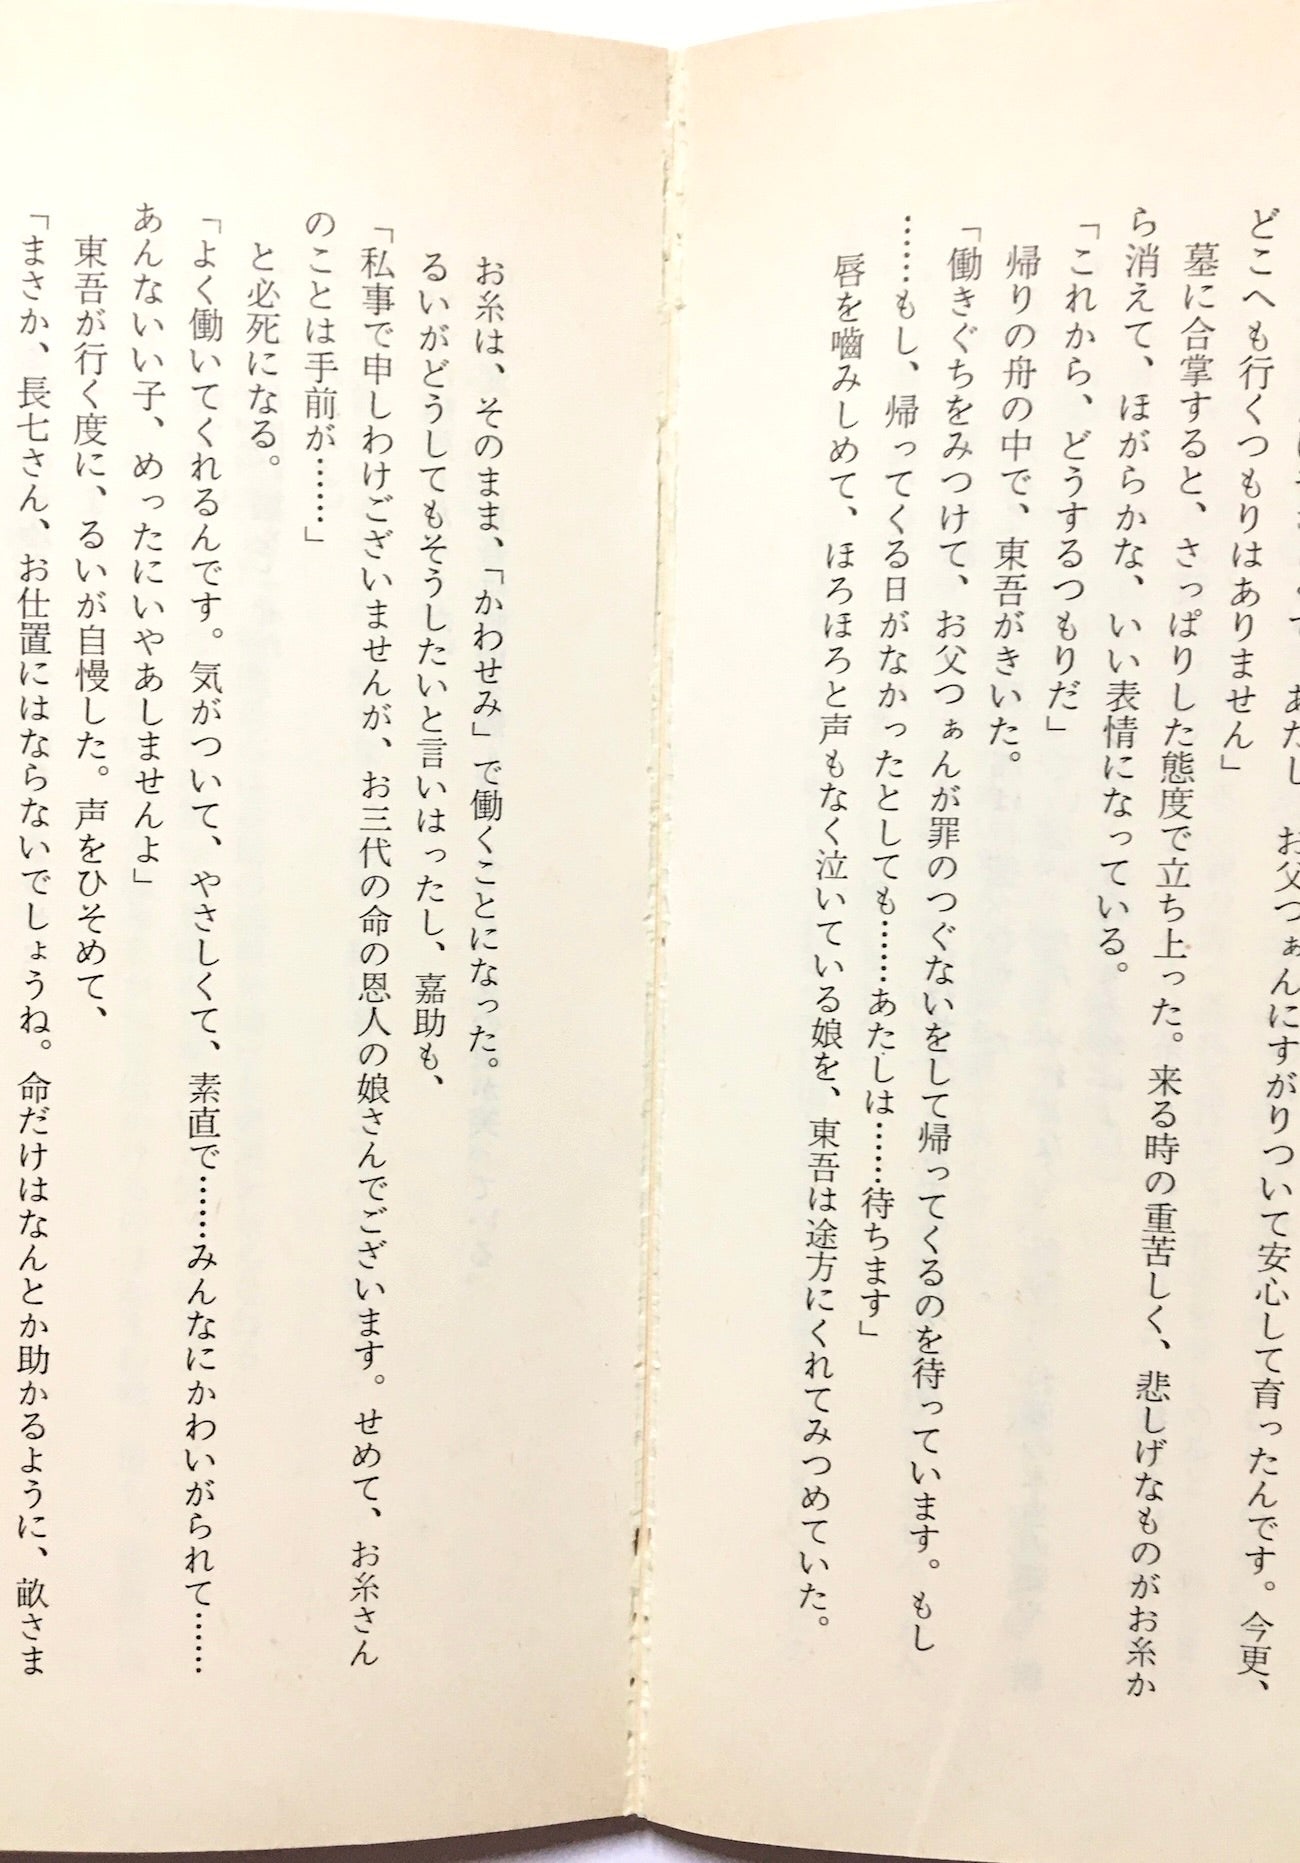 あたし、お父つぁんにすがりついて安心して育ったんです。今更、
どこへも行くつもりはありません」
墓に合掌すると、さっぱりした態度で立ち上った。来る時の重苦しく、悲しげなものがお糸か
ら消えて、ほがらかな、いい表情になっている。
「これから、どうするつもりだ」
帰りの舟の中で、東吾がきいた。
「働きぐちをみつけて、お父つぁんが罪のつぐないをして帰ってくるのを待っています。もし
……もし、帰ってくる日がなかったとしても……あたしは……待ちます」
唇を嚙みしめて、ほろほろと声もなく泣いている娘を、東吾は途方にくれてみつめていた。
お糸は、そのまま、「かわせみ」で働くことになった。
るいがどうしてもそうしたいと言いはったし、嘉助も、
「私事で申しわけございませんが、お三代の命の恩人の娘さんでございます。せめて、お糸さん
のことは手前が……」
と必死になる。
「よく働いてくれるんです。気がついて、やさしくて、素直で……みんなにかわいがられて……
あんないい子、めったにいやあしませんよ」
東吾が行く度に、るいが自慢した。声をひそめて、
「まさか、長七さん、お仕置にはならないでしょうね。命だけはなんとか助かるように、畝さま